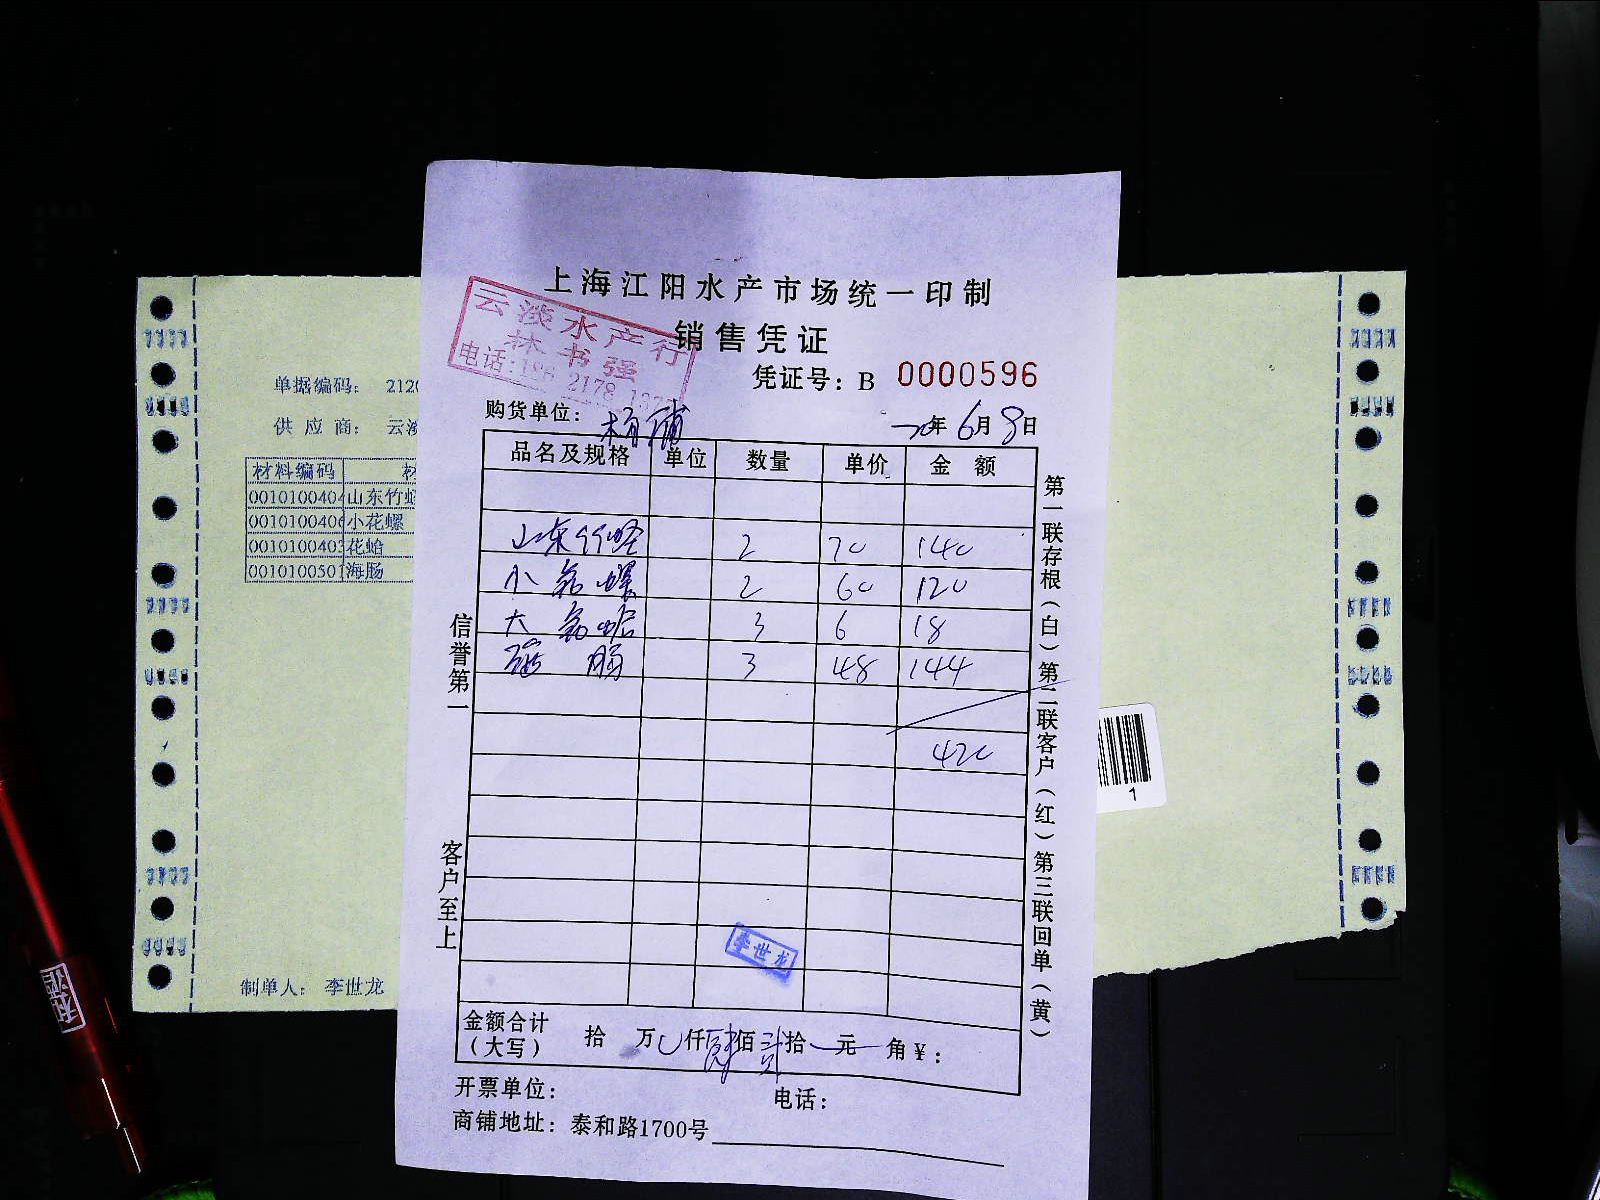 上海江阳水产市场统一印制
销售凭证
云淡水产行
林书强
电话:186 2178
凭证号：B 0000596
购货单位：
20年6月8日
品名及规格 单位 数量 单价 金额
山东竹蛏 2 70 140
小花螺 2 60 120
大花蛤 3 6 18
海肠 3 48 144
420
李世龙
金额合计（大写） 拾 万 0仟肆佰贰拾 元 角¥：
开票单位： 电话：
商铺地址：泰和路1700号
信誉第一
客户至上
第一联存根（白）第二联客户（红）第三联回单（黄）
单据编码： 2120
供应商： 云淡
材料编码 材
0010100404 山东竹蛏
0010100406 小花螺
001010040 花蛤
0010100501 海肠
制单人： 李世龙
1